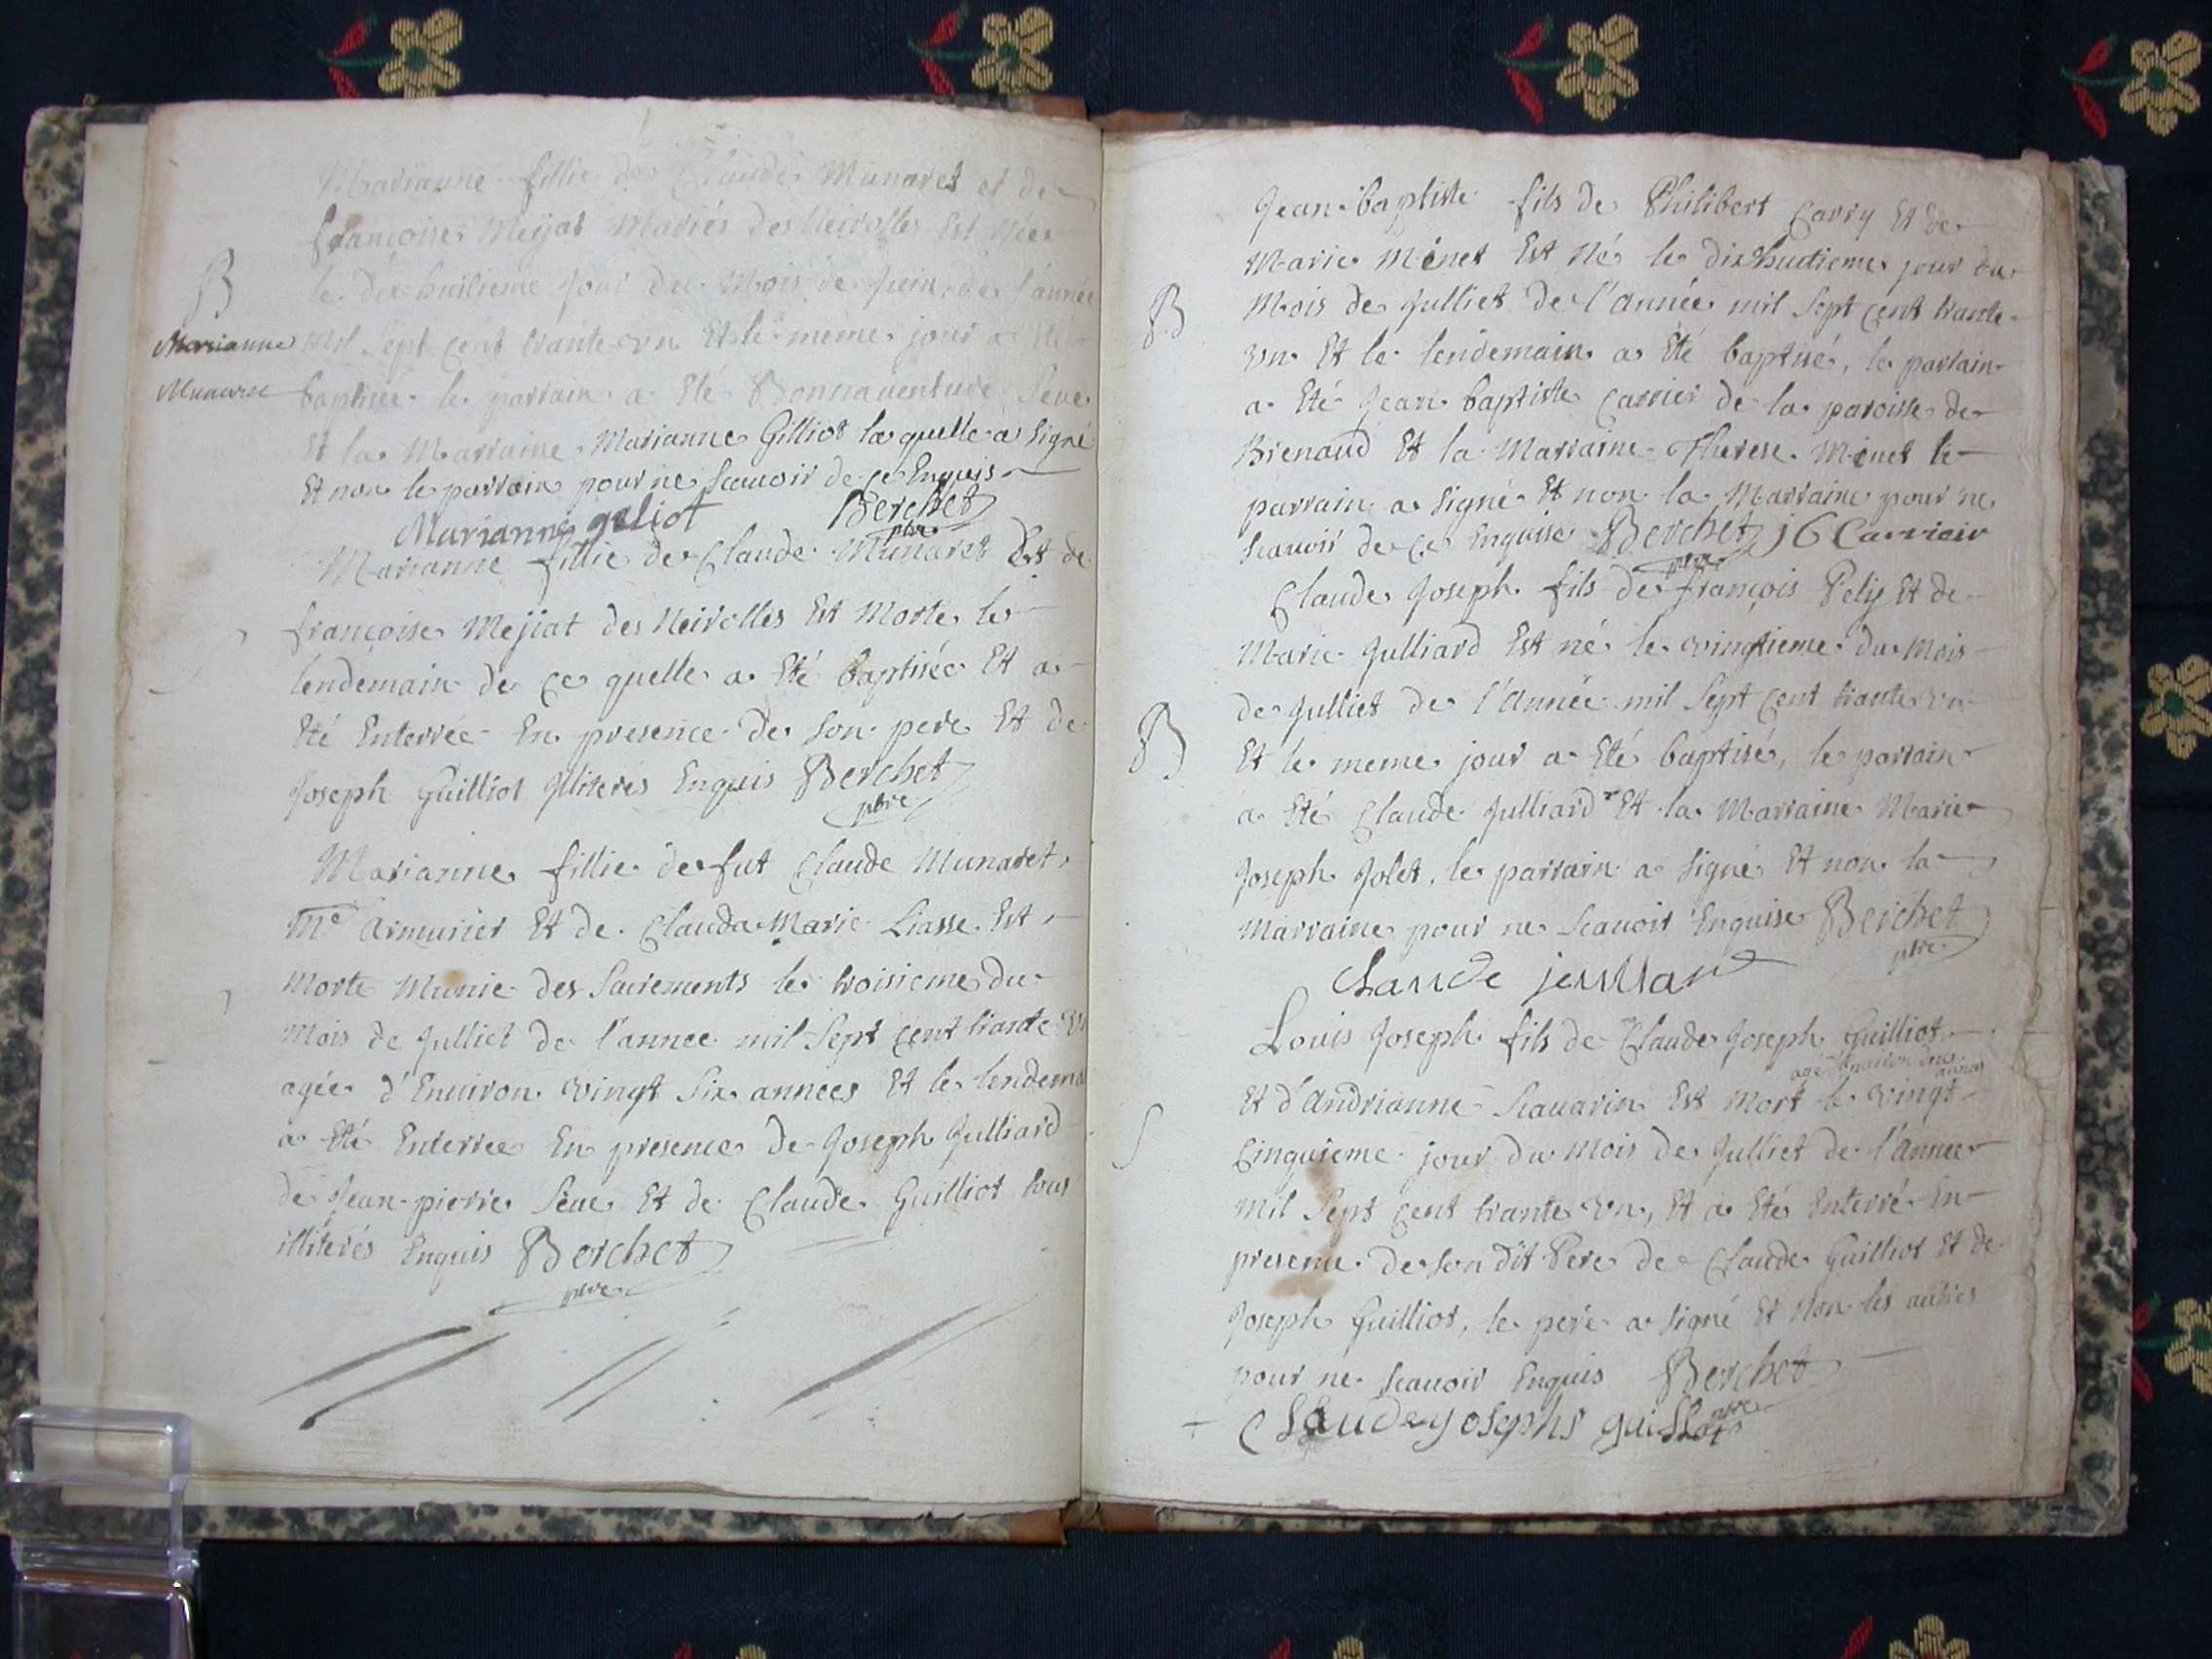 Marianne fillie de Claude Munaret et de
françoise Meyat Mariés des Neirolles Est Née
B
le dixhuitieme jour du Mois de juin de l'année
Marianne
mil Sept cent trante vn Et le meme jour a Eté
Munaret
baptisée le parrain a Eté Bonnauenture Seue
Et la Marraine Marianne Gilliot la quelle a Signé
Et non le parrain pour ne Scauoir de ce Enquis
Marianne geliot Berchet
pbre
Marianne fillie de Claude Munaret Et de
françoise Mejiat des Neirolles Est Morte le
lendemain de ce quelle a Eté baptisée Et a
Eté Enterrée En presence de Son pere Et de
Joseph Guilliot Illiterés Enquis Berchet
pbre
Marianne fillie de fut Claude Munaret
Me Armurier Et de Clauda Marie Liasse Est
Morte Munie des Sacrements le troisieme du
Mois de Julliet de l'annee mil Sept cent trante vn
agée d'Enuiron vingt Six annees Et le lendema
a Eté Enterree En presence de Joseph Julliard
de Jean pierre Seue Et de Claude Guilliot tous
illiterés Enquis Berchet
pbre
Jean baptiste fils de Philibert Carry Et de
Marie Minet Est Né le dixhuitieme jour du
B
Mois de Julliet de l'Année mil Sept cent trante
vn Et le lendemain a Eté baptisé, le parrain
a Eté Jean baptiste Carrier de la paroisse de
Brenaud Et la Marraine Therese Minet le
parrain a Signé Et non la Marraine pour ne
Scauoir de ce Enquise Berchet j6 Carrieir
pbre
Claude Joseph fils de françois Pely Et de
Marie Julliard Est né le vingtieme du Mois
de Julliet de l'Année mil Sept cent trante vn
B
Et le meme jour a Eté baptisé, le parrain
a Eté Claude Julliard Et la Marraine Marie
Joseph Jolet, le parrain a Signé Et non la
Marraine pour ne Scauoir Enquise Berchet
pbre
Claude jeullard
Louis Joseph fils de Claude Joseph Guilliot
agé d'Enuiron
Et d'Andrianne Scauarin Est Mort le vingt
S
Cinquieme jour du Mois de Julliet de l'Annee
mil Sept cent trante vn, Et a Eté Enterré En
presence de Son dit Pere de Claude Guilliot Et de
Joseph Guilliot, le pere a Signé Et Non les autres
pour ne Scauoir Enquis Berchet
pbre
Claude yosephs guilliot